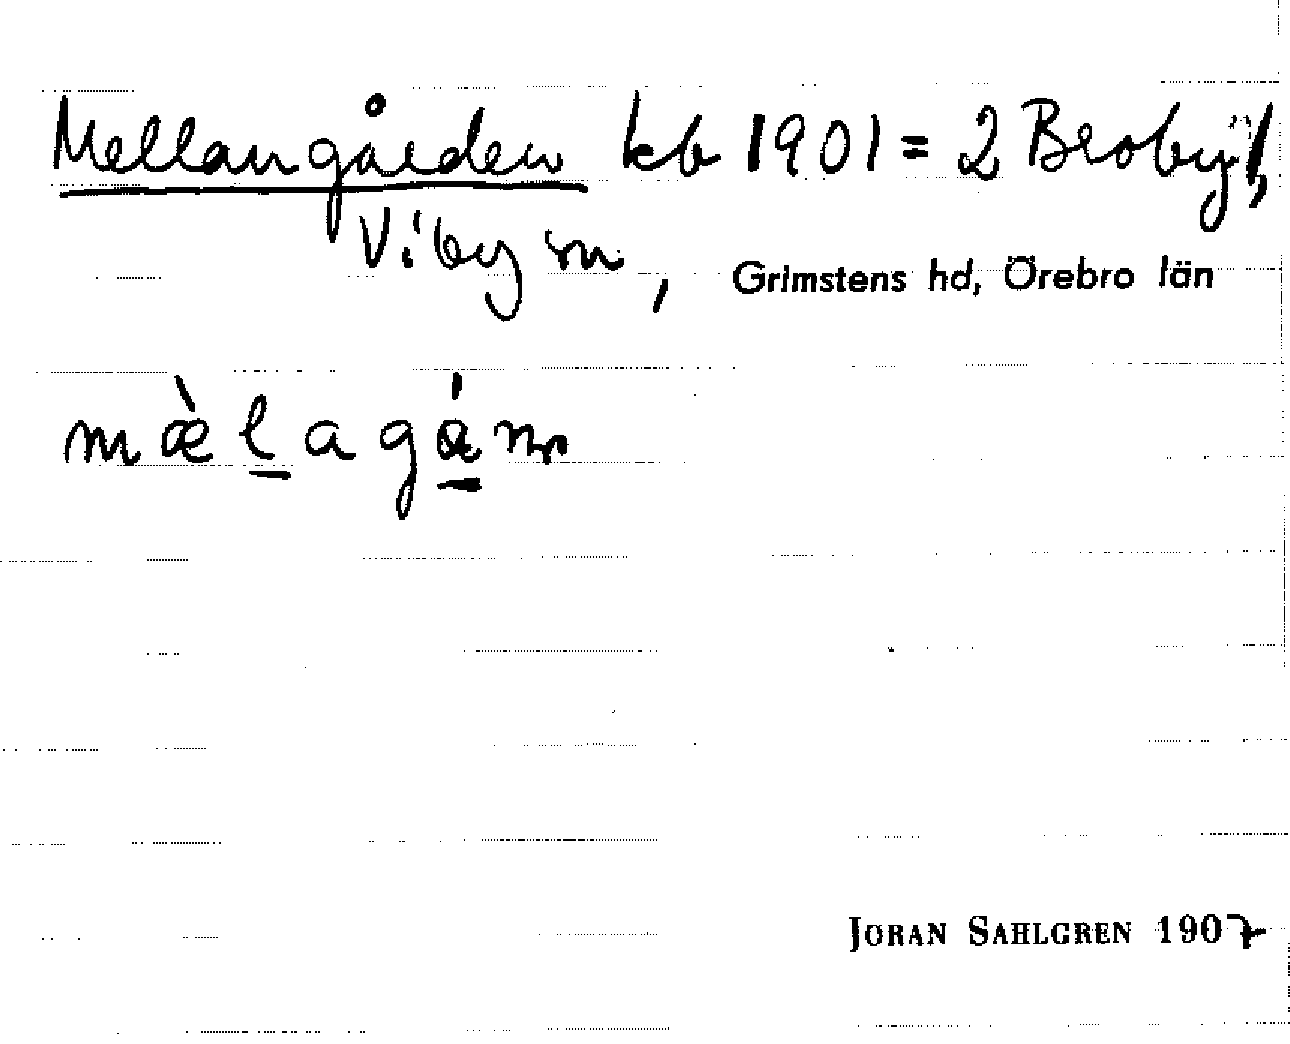 Mellangården kb 1901 = 2 Broby,
Viby sn, Grimstens hd, Örebro län
mæ̀l̲agá̲n
JORAN SAHLGREN 1907